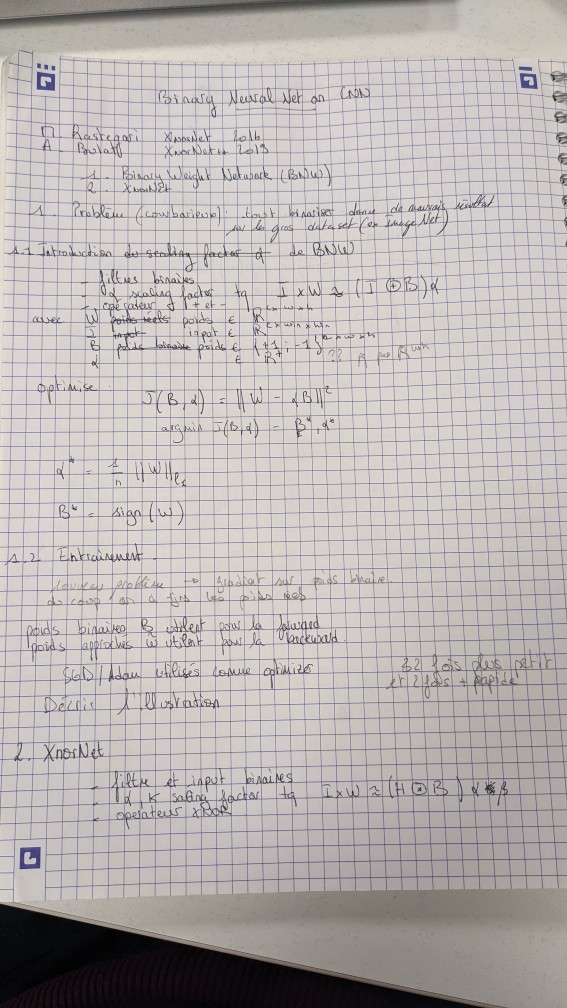 Binary Neural Net on CNN
M. Rastegari XnorNet 2016
A. Bulat XnorNet++ 2019
1. Binary Weight Network (BNW)
2. XnorNet
1. Problème (Courbariaux): tout binariser donne de mauvais résultat
sur les gros dataset (ex ImageNet)
1.1 Introduction du scaling factor α de BNW
- filtres binaires
- α scaling factor tq I × W ≈ (I ⊕ B) α
- opérateur + et -
avec W poids réels poids ∈ R^{c×w×h}
I input input ∈ R^{c×win×hin}
B poids binaire poids ∈ {+1; -1}^{c×w×h}
α ∈ R^+ ??
optimise
J(B,α) = ||W - αB||²
argmin J(B,α) = B*, α*
α* = 1/n ||W||_{ℓ1}
B* = sign(W)
1.2 Entrainement.
problème → gradient sur poids binaire.
du coup on a les poids réels
poids binaires B utilisent pour la forward
poids approchés W utilisent pour la backward.
SGD/Adam utilisés comme optimizer
32 fois plus petit
et 2 fois + rapide
Décris l'illustration
2. XnorNet
- filtre et input binaires
- α, K saling factor tq I × W ≈ (H ⊙ B) α β
- operateur XNOR